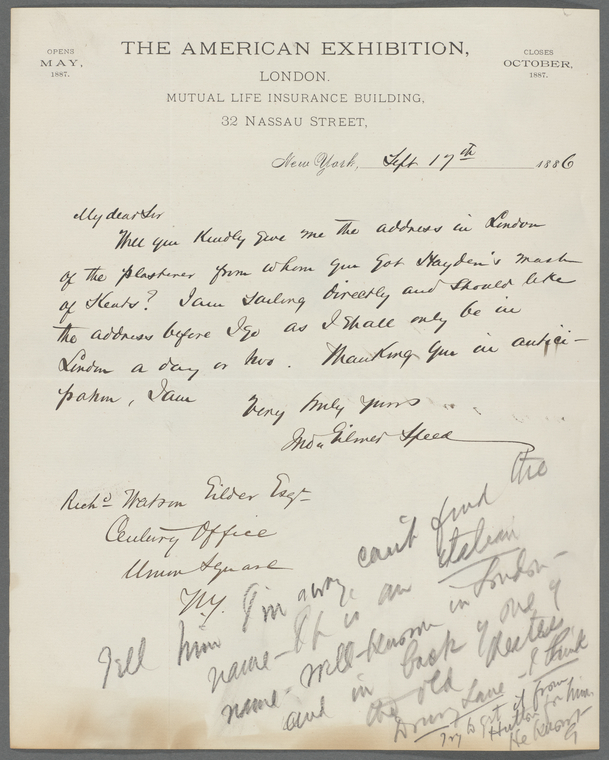 OPENS
MAY,
1887.
THE AMERICAN EXHIBITION,
LONDON.
MUTUAL LIFE INSURANCE BUILDING,
32 NASSAU STREET,
CLOSES
OCTOBER,
1887.
New York, Sept 17th 1886
My dear Sir
Will you kindly give me the address in London
of the plasterer from whom you got Hayden's mask
of Keats? I am sailing directly and should like
the address before I go as I shall only be in
London a day or two. Thanking you in antici-
pation, I am
Very truly yours
Jno Gilmer Speed
Richd Watson Gilder Esqr
Century Office
Union Square
N.Y.
Tell him I'm away can't find the
name - It is an Italian
name - well-known in London -
and in back of one of
the old theatres
Drury Lane - I think
Try to get it from
Hutton for him.
He knows